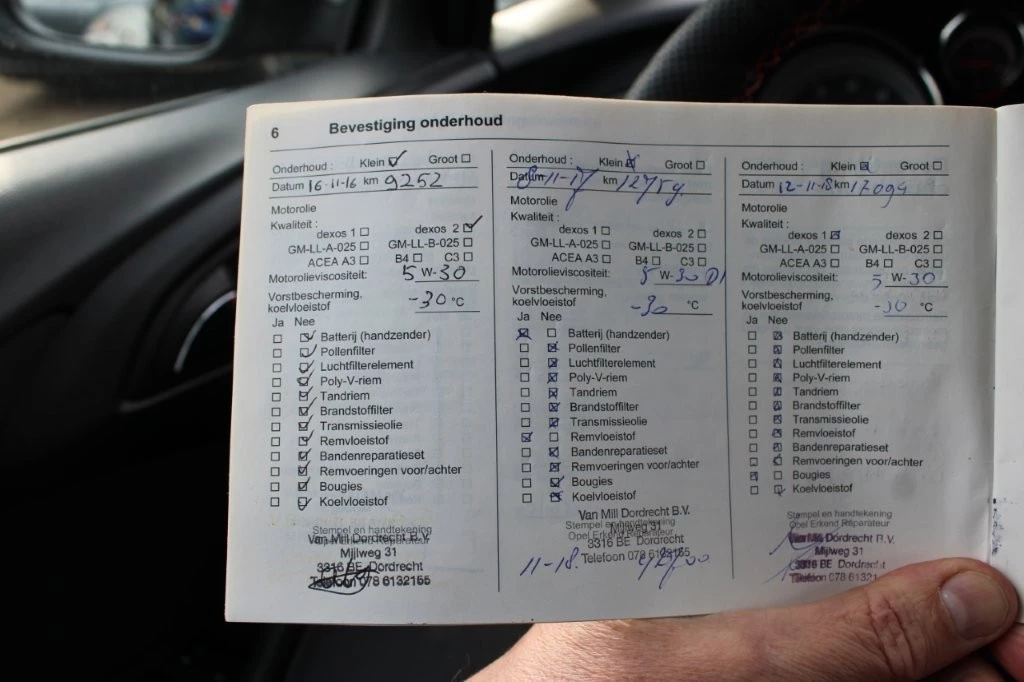 6 Bevestiging onderhoud
Onderhoud : Klein Groot
Datum 16-11-16 km 9252
Motorolie
Kwaliteit :
dexos 1 dexos 2
GM-LL-A-025 GM-LL-B-025
ACEA A3 B4 C3
Motorolieviscositeit: 5 W-30
Vorstbescherming,
koelvloeistof -30 °C
Ja Nee
Batterij (handzender)
Pollenfilter
Luchtfilterelement
Poly-V-riem
Tandriem
Brandstoffilter
Transmissieolie
Remvloeistof
Bandenreparatieset
Remvoeringen voor/achter
Bougies
Koelvloeistof
Stempel en handtekening
Opel Erkend Reparateur
Van Mill Dordrecht B.V.
Mijlweg 31
3316 BE Dordrecht
Telefoon 078 6132165
Onderhoud : Klein Groot
Datum 8-11-17 km
Motorolie
Kwaliteit :
dexos 1 dexos 2
GM-LL-A-025 GM-LL-B-025
ACEA A3 B4 C3
Motorolieviscositeit: 5 W-30 D1
Vorstbescherming,
koelvloeistof -30 °C
Ja Nee
Batterij (handzender)
Pollenfilter
Luchtfilterelement
Poly-V-riem
Tandriem
Brandstoffilter
Transmissieolie
Remvloeistof
Bandenreparatieset
Remvoeringen voor/achter
Bougies
Koelvloeistof
Van Mill Dordrecht B.V.
Stempel en handtekening
Mijlweg 31
Opel Erkend Reparateur
3316 BE Dordrecht
Telefoon 078 6132165
11-18.
Onderhoud : Klein Groot
Datum 12-11-18 km 17094
Motorolie
Kwaliteit :
dexos 1 dexos 2
GM-LL-A-025 GM-LL-B-025
ACEA A3 B4 C3
Motorolieviscositeit: 5 W-30
Vorstbescherming,
koelvloeistof -30 °C
Ja Nee
Batterij (handzender)
Pollenfilter
Luchtfilterelement
Poly-V-riem
Tandriem
Brandstoffilter
Transmissieolie
Remvloeistof
Bandenreparatieset
Remvoeringen voor/achter
Bougies
Koelvloeistof
Stempel en handtekening
Opel Erkend Reparateur
Van Mill Dordrecht B.V.
Mijlweg 31
3316 BE Dordrecht
Telefoon 078 6132